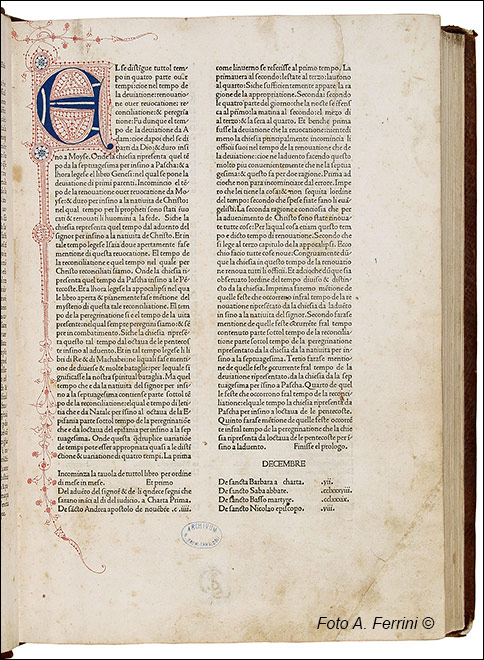 EL se distigue tuttol tem
po in quatro parte ouer
tempi:cioe nel tempo de
la deuiatione:renouatio
ne ouer reuocatione: re
conciliatione: & peregria
tione: Fu dunque el tem
po de la deuiatione da A
dam:cioe dapoi che se p
parti da Dio:& duro insi
no a Moyse. Onde la chiesia presenta quel tēpo
da la septuagesima per insino a Pascha:& a
lhora legese el libro Genesi:nel qual se pone la
deuiatione di primi parenti. Incomincio el tē
po de la renouatione ouer reuocatione da Mo
yse:& duro per insino a la natiuita de Christo:
nel qual tempo per li propheti sono stati rou
cati & renouati li huomini a la fede. Siche la
chiesia representa quel tempo dal aduento del
signore per insino a la natiuita de Christo. Et in
tal tempo legese Isaia doue apertamente fase
mentione di questa reuocatione. El tempo de
la reconciliatione e quel tempo nel quale per
Christo reconciliati siamo. Onde la chiesia ri
presenta quel tempo da Pascha insino a la Pē
tecoste. Et a lhora legese la apocalypsi nel qua
le libro aperta & pianamente fase mētione del
mysterio di questa tale reconciliatione. El tem
po de la peregrinatione si e el tempo de la uita
presente:nel qual sempre peregrini siamo: & sē
pre in combatimento. Siche la chiesia ripresē
ta questo tal tempo dal octaua de le pentecost
te insino al aduento. Et in tal tempo legese li li
bri di Re & di Machabei:ne li quali fase menti
one de diuerse & molte battaglie:per lequale si
significa la nostra spirituale battaglia. Ma quel
tempo che e da la natiuita del signor per insi
no a la septuagesima contiene parte sottol tē
po de la reconciliatione:el qual e tempo di leti
tia:che e da Natale per insino al octaua de la E
pifania parte sottol tempo de la peregrinatiōe
che e da loctaua del epifania per insino a la sep
tuagesima. Onde questa q̄druplice uariatione
de tempi puote esser appropriata quasi a le disti
ctione & uariatione de quatro tempi de lanno.
Incominza la tauola de tuttol libro per ordine
di mese in mese. Et primo
Del aduēto del signor & de li qndece segni che
sarano ināci al di del iudicio. a Charta Prima.
De sācto Andrea apostolo de nouēbre .c. .iiii.
come linuerno se referisse al primo tempo. La
primauera al secondo:lestate al terzo:lautono
al quarto: Siche sufficientemente appare la ra
gione de la appropriatione. Secondo:ai secondo
le quatro parte del giorno:che la nocte se refferi
sca al primo:la matina al secondo:el mezo di
al terzo:& la sera al quarto. Et benche prima
fusse la deuiatione che la reuocatione:nientedi
meno la chiesia principalmente incomincia li
officii suoi nel tempo de la renouatione:che de
uiatione:cioe ne laduento facendo questo
molto piu conuenientemente che ne la septua
gesima: & questo fa per doe ragione. Prima ad
cioche non para incominciare del errore. Impe
ro che lei tiene la cosa:& non sequita lordine
del tempo: secondo che spesse fiate fano li eua
gelisti. La seconda ragione e conciosia che per
la aduenimento de Christo sono state renoua
te tutte cose: Per laqual cosa e tiam questo tem
po e dicto tempo di renouatione. Secondo che
si lege al terzo capitolo de la apocalipsi. Ecco
chio facio tutte cose noue. Congruamente dū
que la chiesia in questo tempo de la renouatio
ne renoua tutti li officii. Et adcioche dūque sia
obseruato lordine del tempo diuiso & distin
cto da la chiesia. Imprima faremo mētione de
quelle feste che occorreno infral tempo de la re
nouatione ripresētato da la chiesia da la aduēto
insino a la natiuita del signor. Secondo farase
mentione de quelle feste occurrēte fral tempo
contenuto parte sottol tempo de la reconcilia
tione parte sottol tempo de la peregrinatione
ripresentato da la chiesia da la natiuita per in
sino a la septuagesima. Tertio farase mentio
ne de quelle feste occurrente fral tempo de la
deuiatione ripresentato. da la chiesia da la sep
tuagesima per insino a Pascha. Quarto de quel
le feste che occorreno fral tempo de la reconci
liatione:elquale tempo la chiesia ripresenta da
Pascha per insino a loctaua de le pentecoste.
Quinto farase mētione de quelle feste occorrē
te infral tempo de la peregrinatione che la chie
sia ripresenta da loctaua de le pentecoste per in
sino a laduento. Finisse el prologo.
DECEMBRE
De sancta Barbara a charta. .vii.
De sancto Saba abbate. .cclxxxviii.
De sancto Basso martyre. .cclxxxix.
De sancto Nicolao episcopo. .viii.
ARCHIVUM
Foto A. Ferrini ©